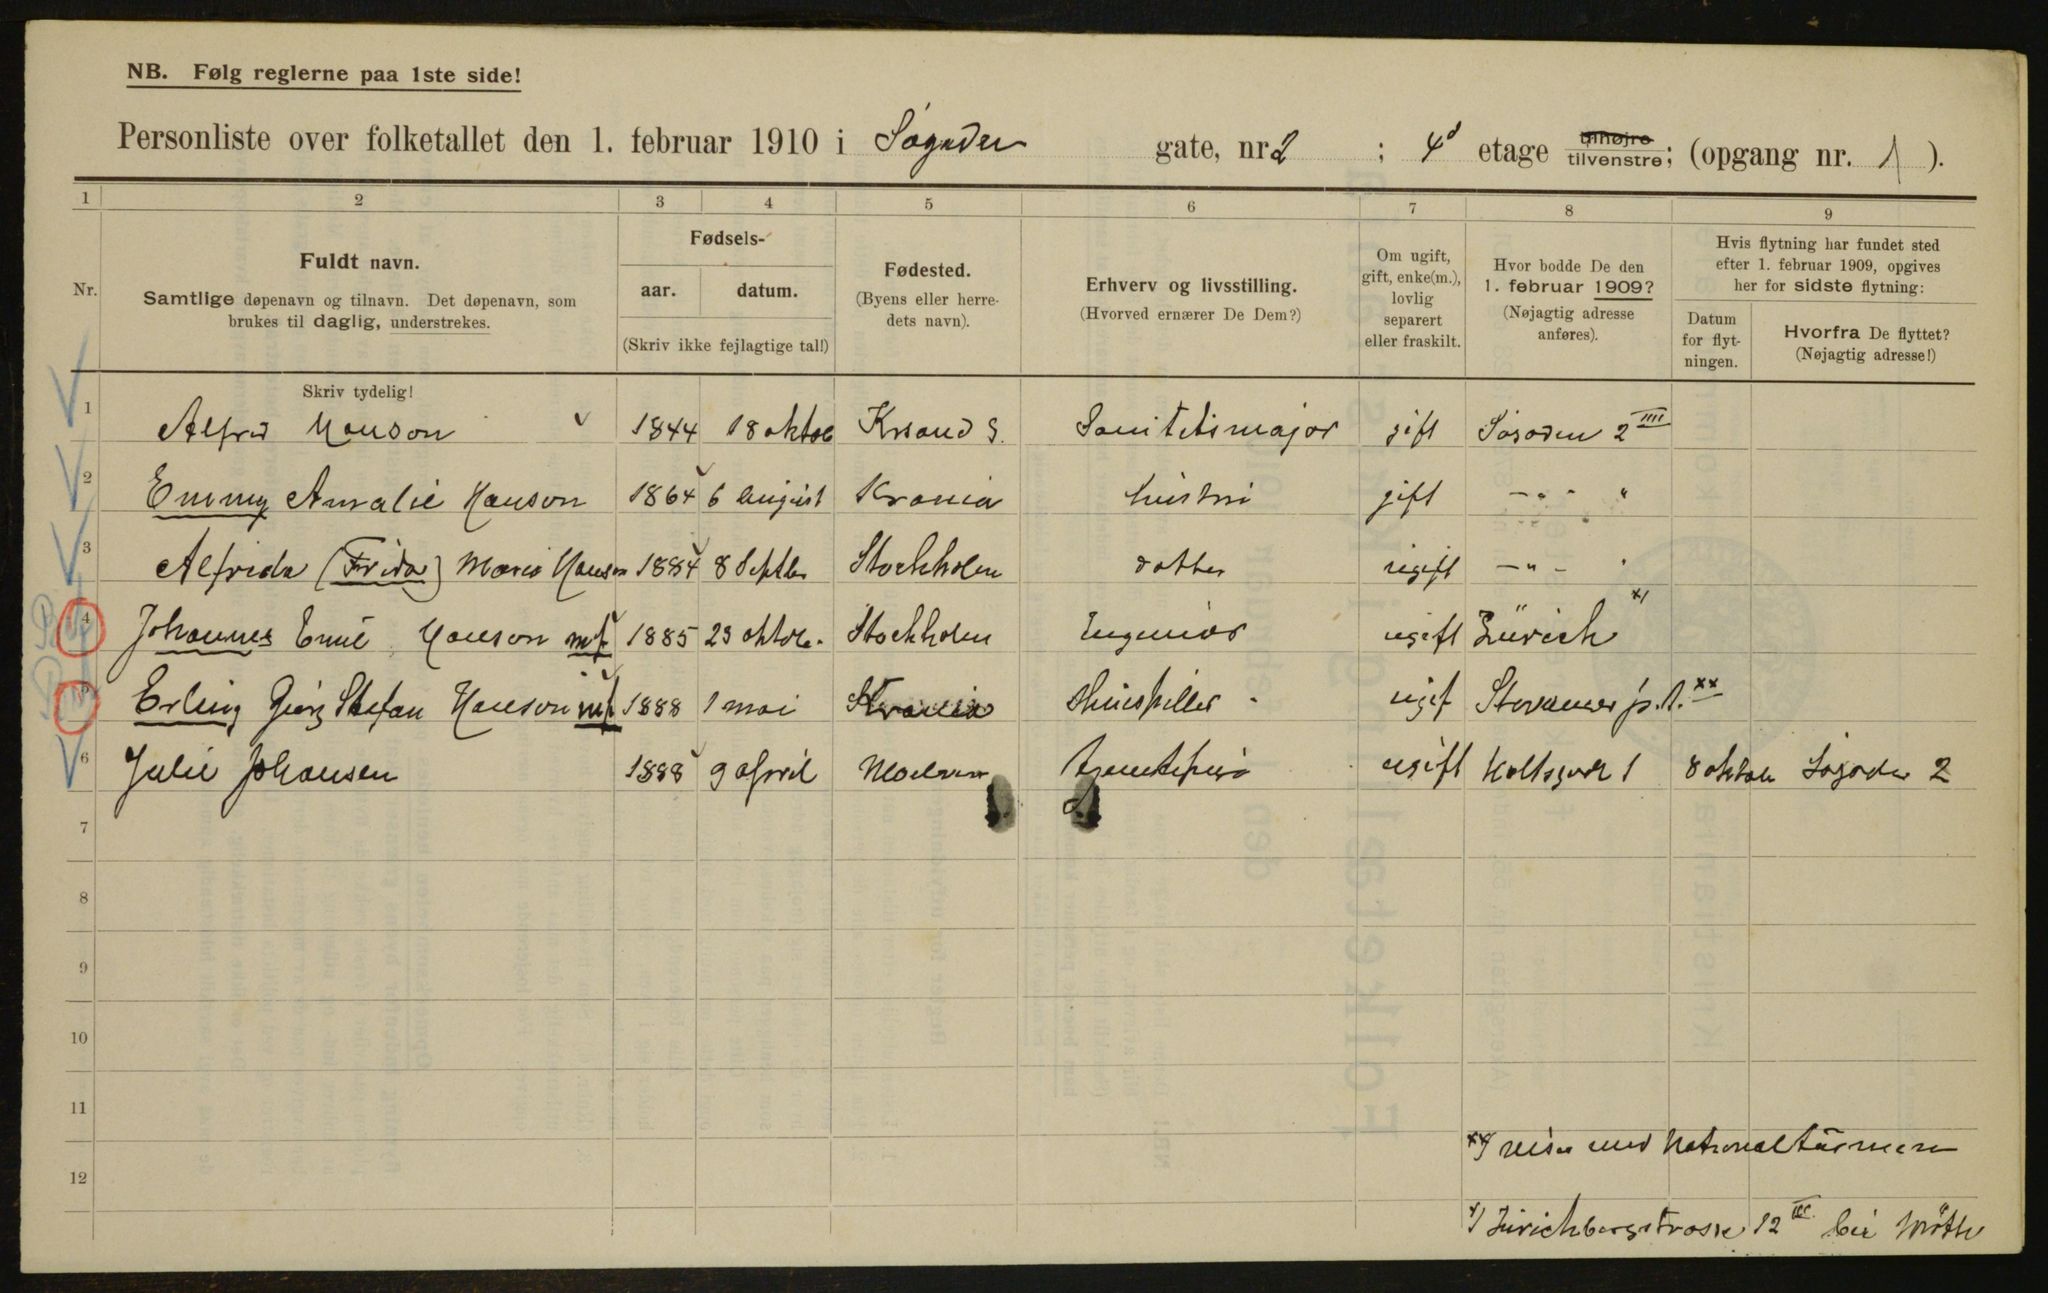 NB. Følg reglerne paa 1ste side!
Personliste over folketallet den 1. februar 1910 i Sogneder gate, nr. 2 ; 4d etage tilhøjre tilvenstre; (opgang nr. 1 ).
1 2 3 4 5 6 7 8 9
Nr.
Fuldt navn.
Samtlige døpenavn og tilnavn. Det døpenavn, som
brukes til daglig, understrekes.
Skriv tydelig!
Fødsels-
aar. datum.
(Skriv ikke fejlagtige tal!)
Fødested.
(Byens eller herre-
dets navn).
Erhverv og livsstilling.
(Hvorved ernærer De Dem?)
Om ugift,
gift, enke(m.),
lovlig
separert
eller fraskilt.
Hvor bodde De den
1. februar 1909?
(Nøjagtig adresse
anføres).
Hvis flytning har fundet sted
efter 1. februar 1909, opgives
her for sidste flytning:
Datum
for flyt-
ningen.
Hvorfra De flyttet?
(Nøjagtig adresse!)
1 Alfred Hanson 1844 18 oktob Krsand S. Sanitetsmajor gift 2 IIII
2 Emmy Amalie Hanson 1864 6 August Krania hustru gift - " - "
3 Alfrida (Frida) Marie Hanson 1884 8 Septbr Stockholm datter ugift - " - "
4 Johannes Emil Hanson mf 1885 23 oktob. Stockholm Ingeniør ugift Zürich x)
5 Erling Stefan Hanson mf 1888 1 mai Krania Skuespiller ugif Stavanger p.t. xx
6 Julie Johansen 1888 9 april ugift 1 8 oktob 2
7
8
9
10
11
12
xx) reise med Nationalturneen
x) Zürichbergstrasse 12 III bei